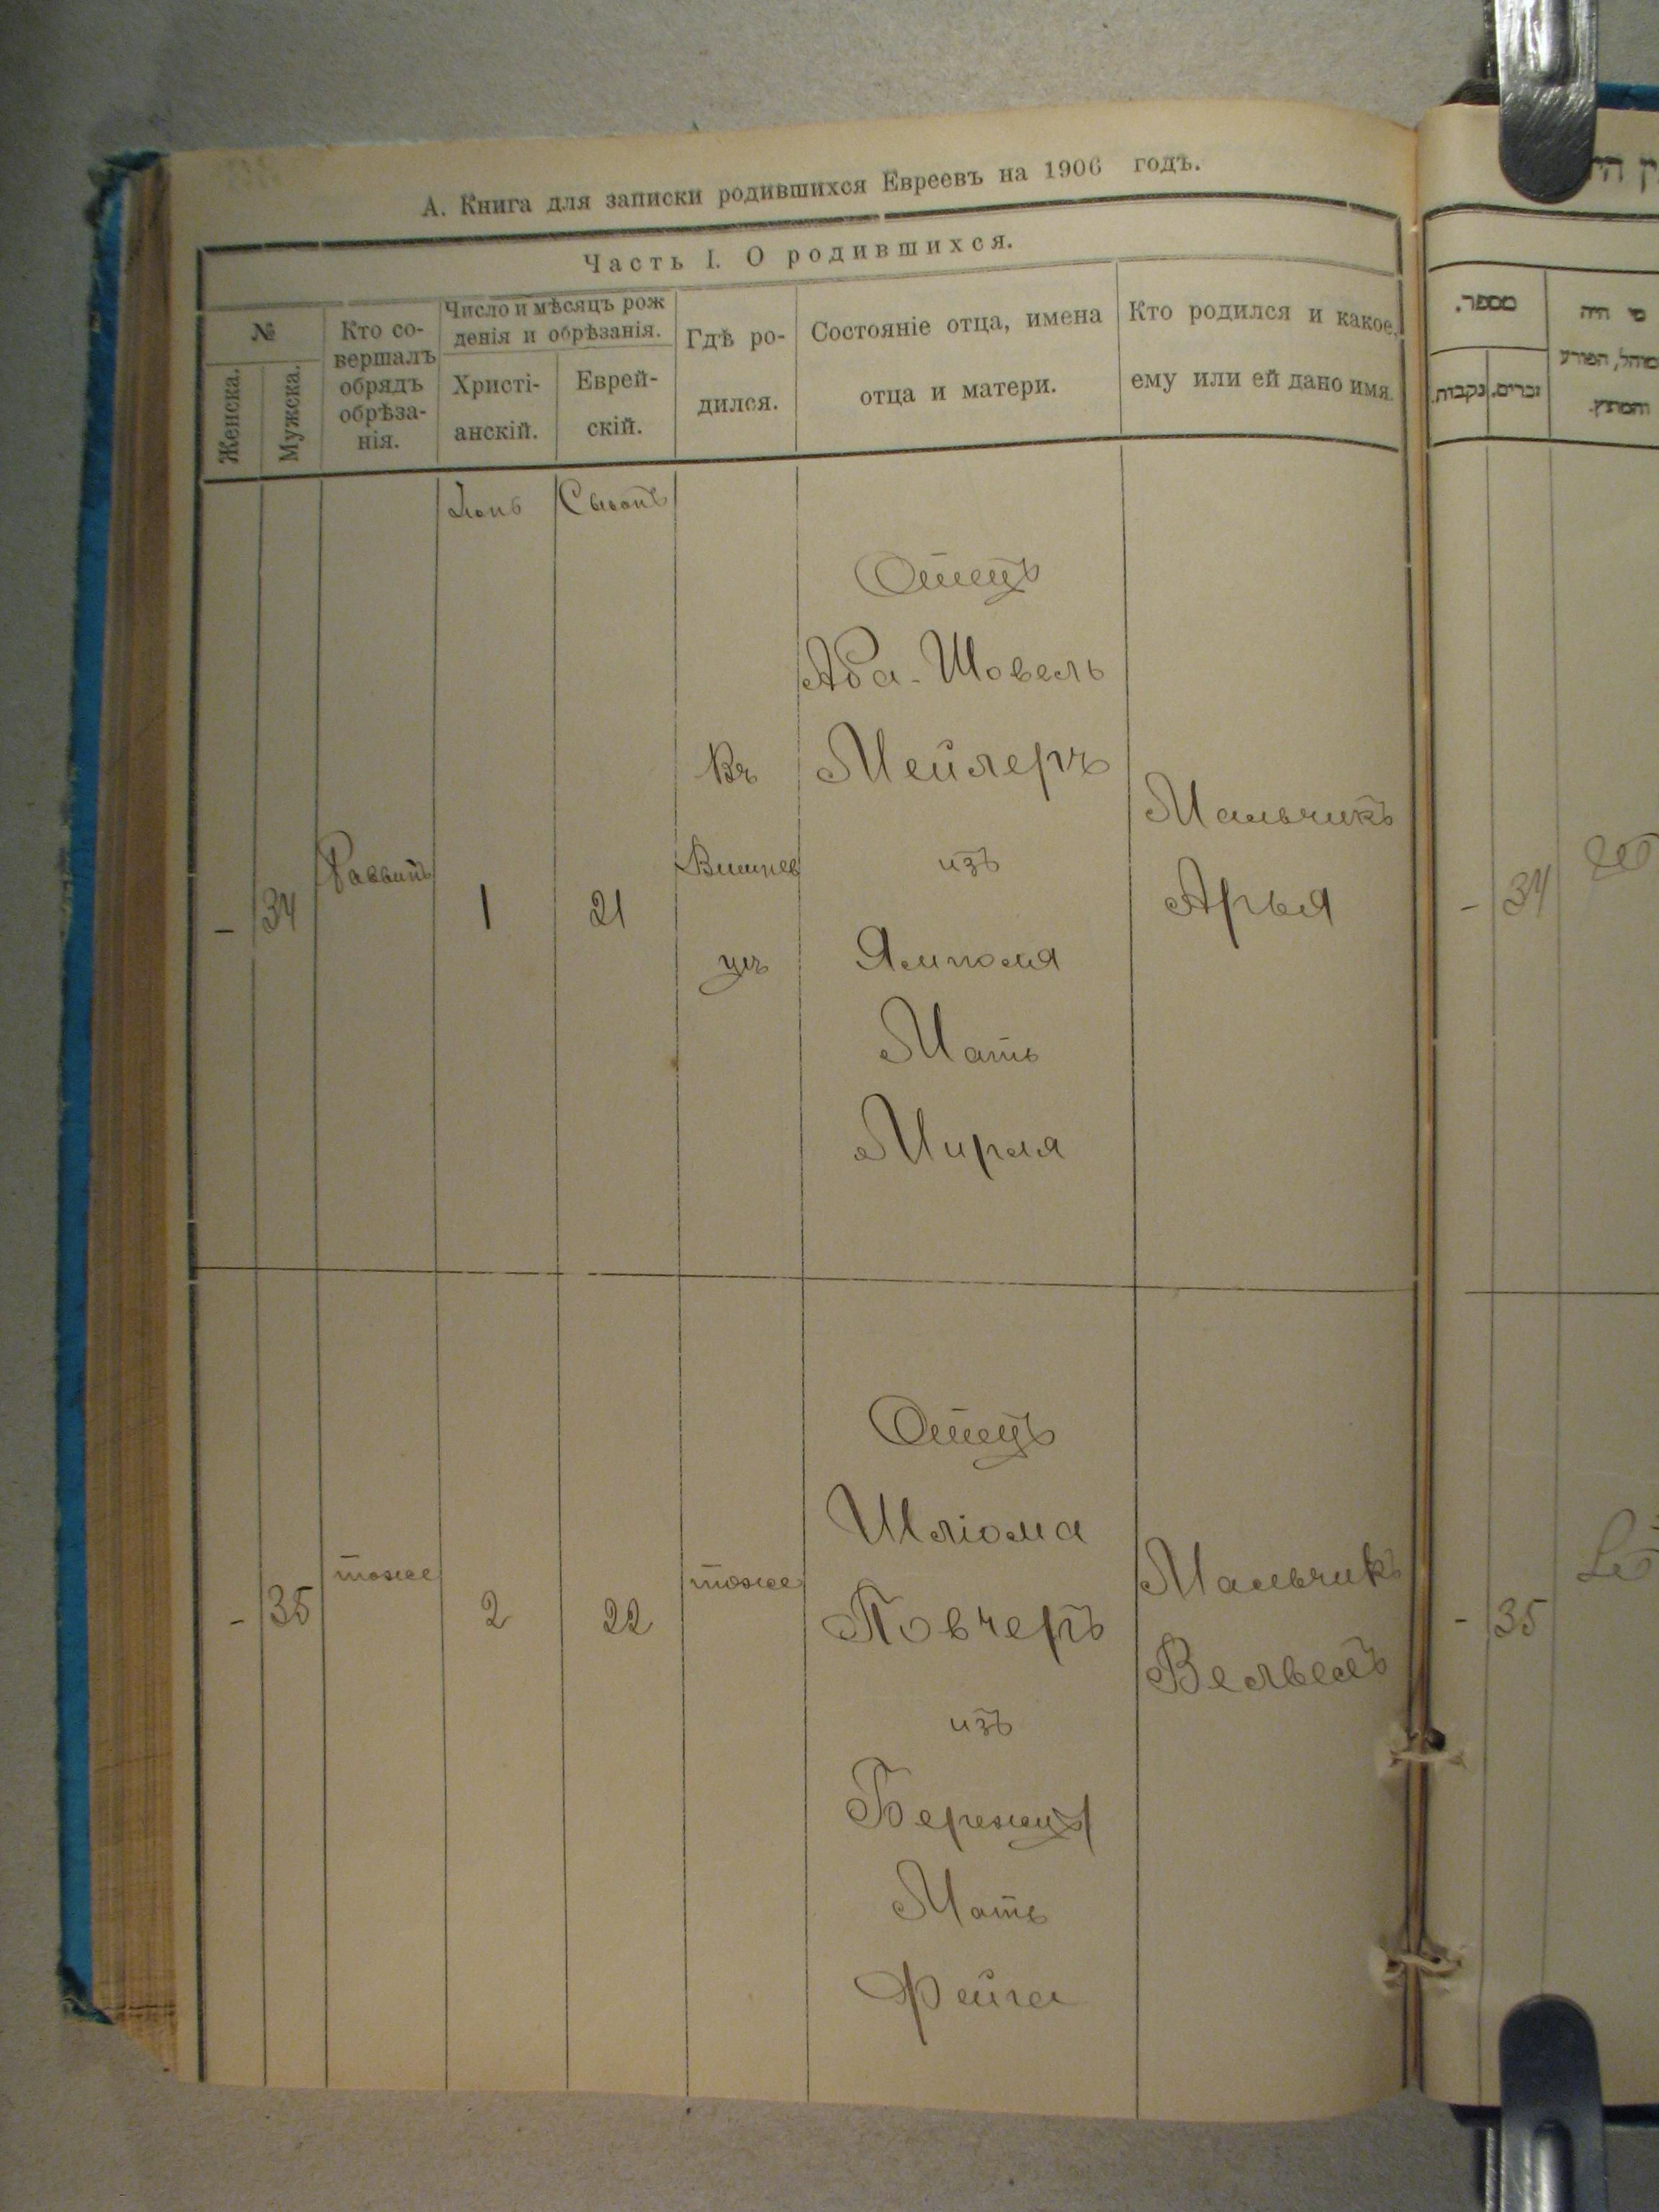 А. Книга для записки родившихся Евреевъ на 1906 годъ.
Часть I. О родившихся.
№
Женска.
Мужска.
Кто со-
вершалъ
обрядъ
обрѣза-
нія.
Число и мѣсяцъ рож
денія и обрѣзанія.
Христі-
анскій.
Еврей-
скій.
Гдѣ ро-
дился.
Состояніе отца, имена
отца и матери.
Кто родился и какое
ему или ей дано имя.
Іюнь
- 34
Раввинъ
1
21
Въ
Вишнев
цѣ
Отецъ
Аба-Шовель
Мейлеръ
изъ
Ямполя
Мать
Мирля
Мальчикъ
Арья
- 35
тоже
2
22
тоже
Отецъ
Шліома
Повчеръ
изъ
Бережецъ
Мать
Фейга
Мальчикъ
Вельвель
מספר.
נקבות.
זכרים.
מי היה
המוהל, הפורע
והמוצץ.
- 34
- 35